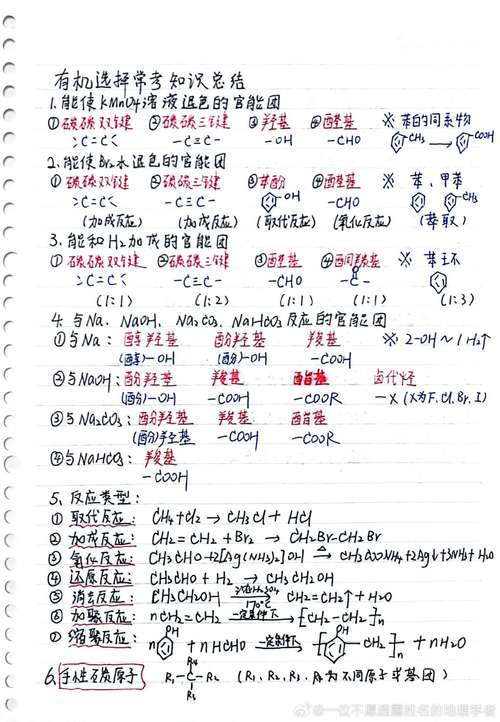 有机选择常考知识总结
1.能使KMnO4溶液退色的官能团
①碳碳双键 ②碳碳三键 ③羟基 ④醛基 ※ 苯的同系物
>C=C< -C≡C- -OH -CHO CH3 → COOH
2.能使Br2水退色的官能团
①碳碳双键 ②碳碳三键 ③苯酚 ④醛基 ※ 苯、甲苯
>C=C< -C≡C- OH -CHO CH3
(加成反应) (加成反应) (取代反应) (氧化反应) (萃取)
3.能和H2加成的官能团
①碳碳双键 ②碳碳三键 ③醛基 ④酮羰基 ※ 苯环
>C=C< -C≡C- -CHO -C- O
(1:1) (1:2) (1:1) (1:1) (1:3)
4.与Na、NaOH、Na2CO3、NaHCO3反应的官能团
①与Na: 醇羟基 酚羟基 羧基 ※ 2-OH~1H2↑
(醇)-OH (酚)-OH -COOH
②与NaOH:酚羟基 羧基 酯基 卤代烃
(酚)-OH -COOH -COOR -X (X为F.Cl.Br.I)
③与Na2CO3:酚羟基 羧基 酯基
(酚)羟基 -COOH -COOR
④与NaHCO3:羧基
-COOH
5、反应类型:
① 取代反应: CH4+Cl2 → CH3Cl + HCl
② 加成反应: CH2=CH2 + Br2 → CH2Br-CH2Br
③ 氧化反应: CH3CHO+2[Ag(NH3)2]OH △→ CH3COONH4+2Ag↓+3NH3+H2O
④ 还原反应: CH3CHO + H2 → CH3CH2OH
⑤ 消去反应: CH3CH2OH 浓H2SO4 170℃→ CH2=CH2↑+H2O
⑥ 加聚反应: nCH2=CH2 一定条件下→ [CH2-CH2]n
⑦ 缩聚反应: n OH + nHCHO 一定条件下→ [OH CH2]n + nH2O
6、手性碳原子 R1-C-R2 R4 R3 (R1、R2、R3、R4为不同原子或基团)
@一位不愿透露姓名的地理学者